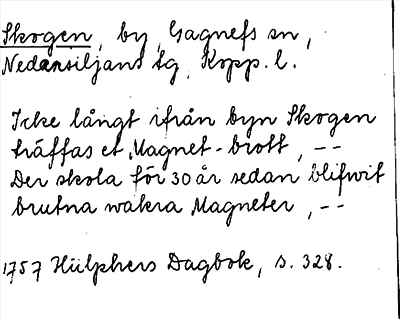 Skogen, by, Gagnefs sn,
Nedansiljans tg, Kopp. l.
Icke långt ifrån byn Skogen
träffas et Magnet-brott, --
Der skola för 30 år sedan blifwit
brutna wakra Magneter, --
1757 Hülphers Dagbok, s. 328.